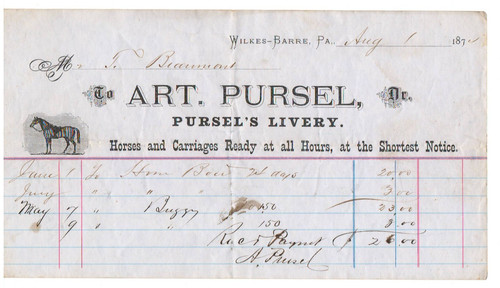 Wilkes-Barre, Pa., Aug 1 187
Mr T. Beaumont
To ART. PURSEL, Dr.
PURSEL'S LIVERY.
Horses and Carriages Ready at all Hours, at the Shortest Notice.
June 1 To Horse 24 days 20.00
" " " 3.00
May 7 " 1 Buggy 1.50 23.00
9 " " 150 3.00
Rec'd Paymt $ 26.00
A. Pursel